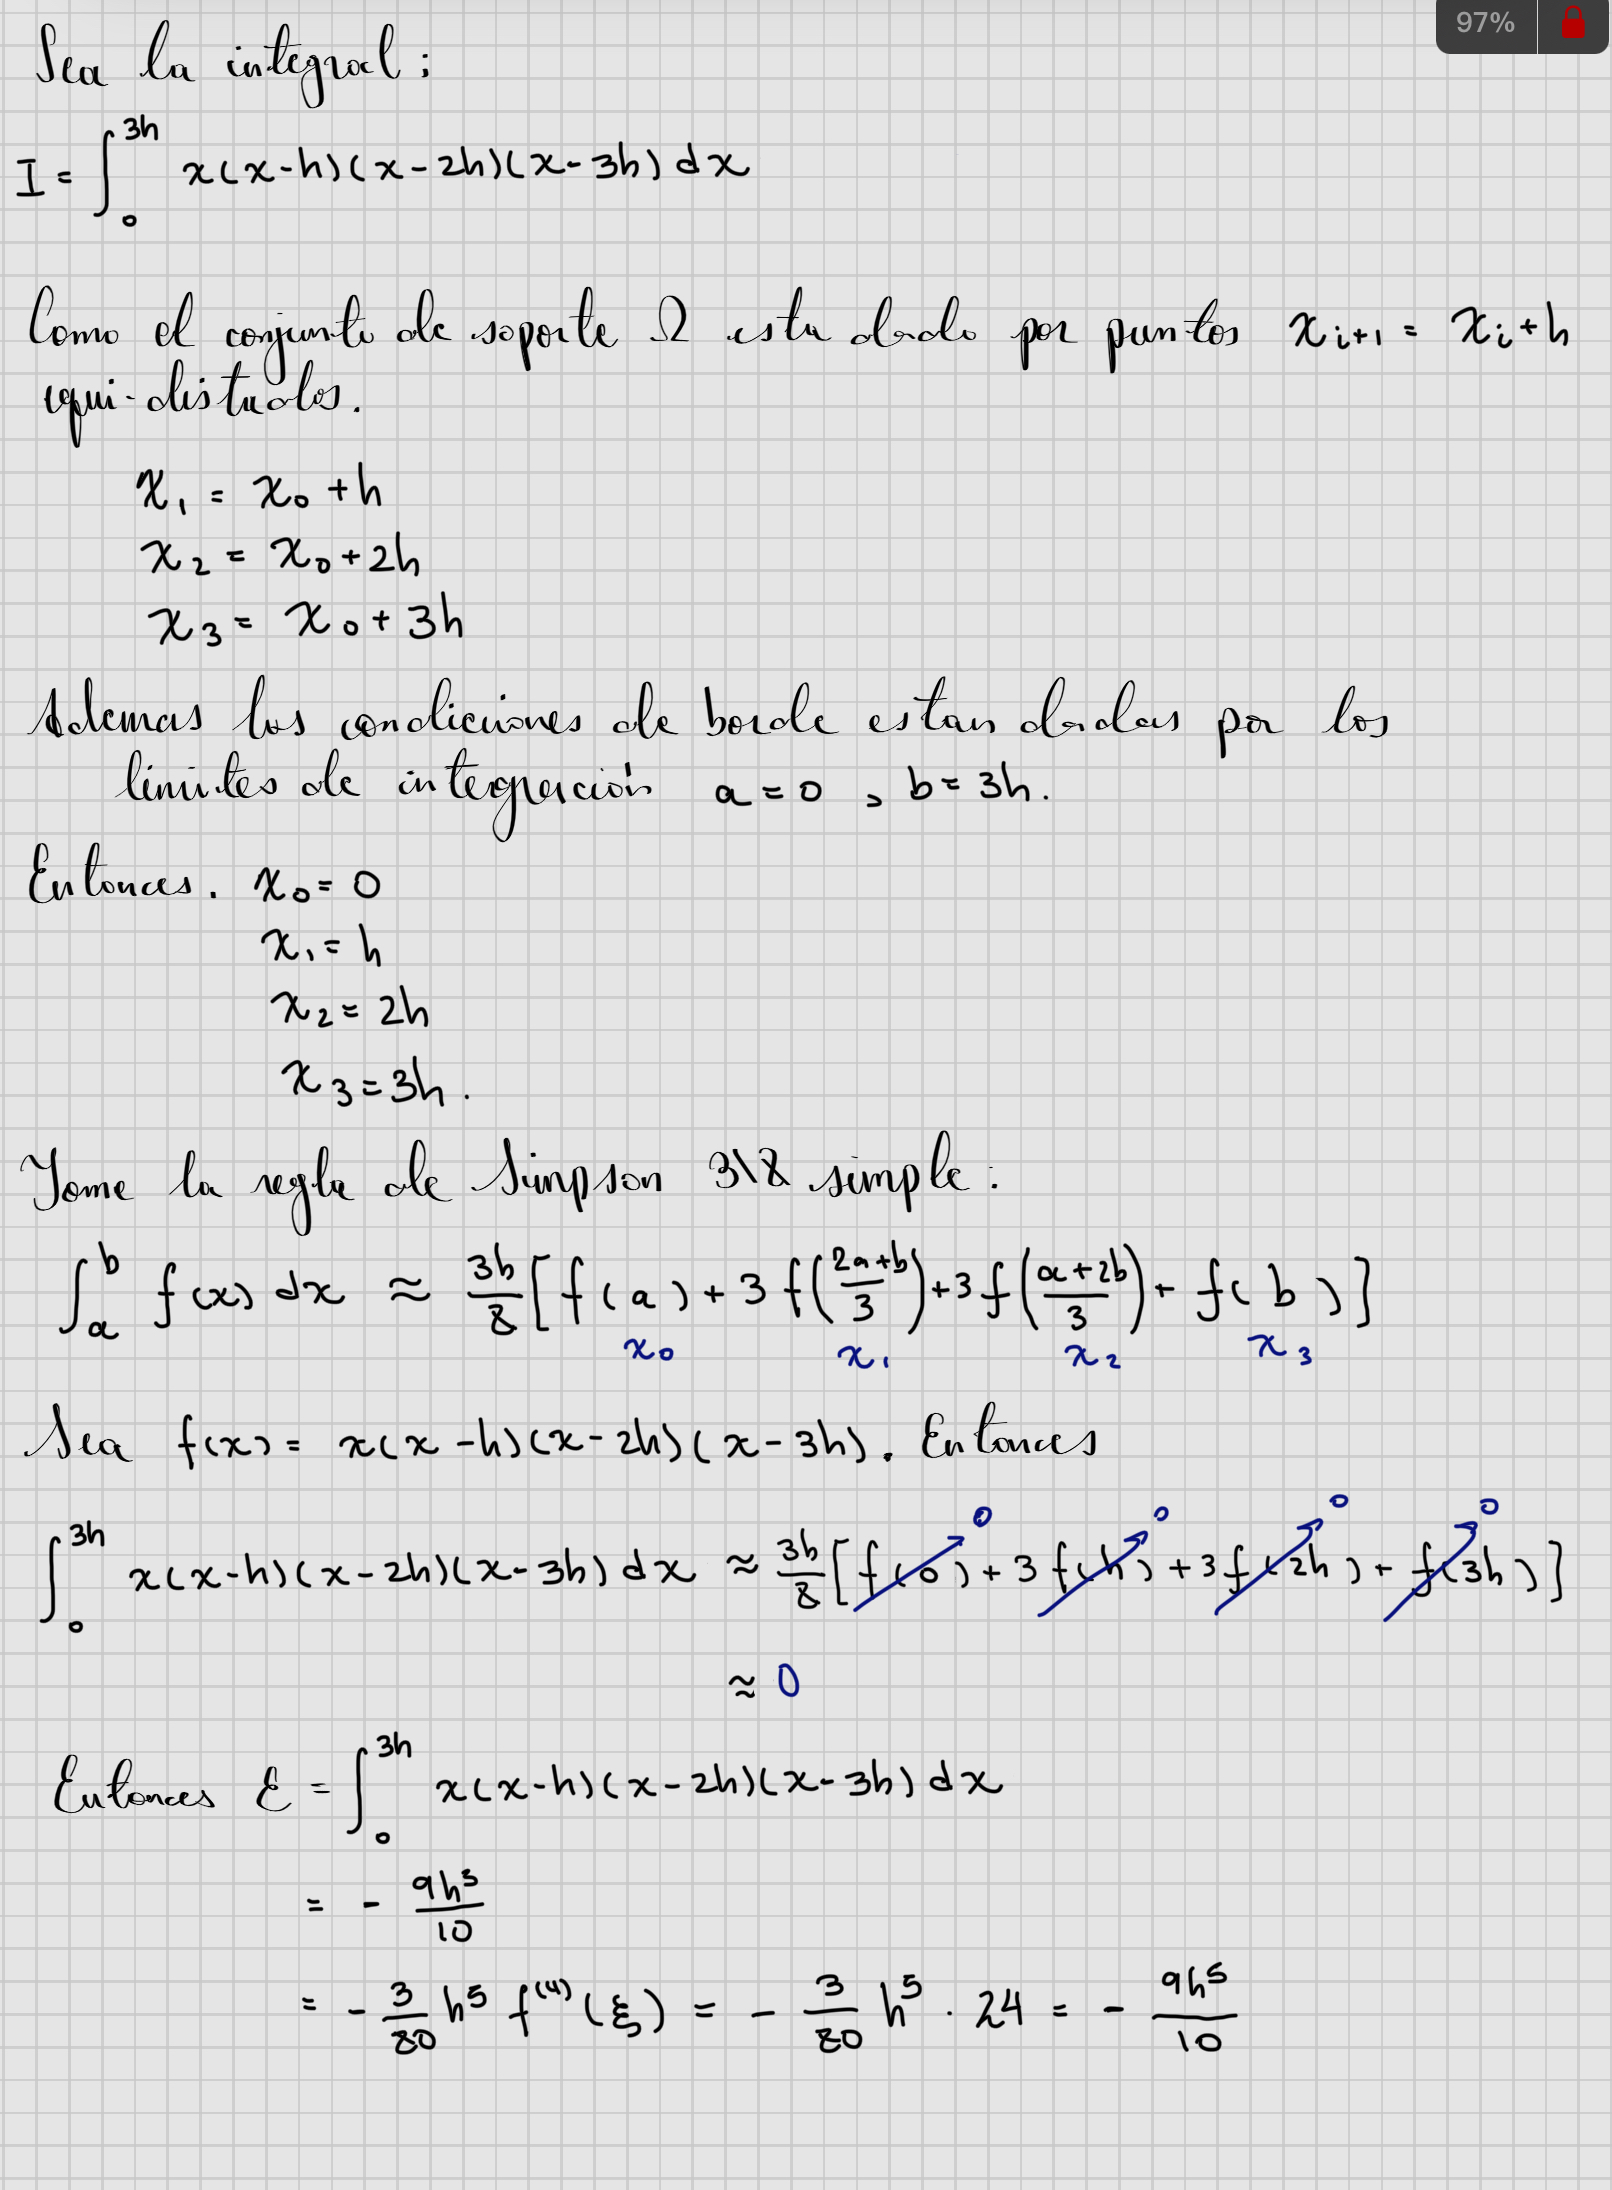 97%
Sea la integral:
I = ∫₀^{3h} x(x-h)(x-2h)(x-3h) dx
Como el conjunto de soporte Ω esta dado por puntos x_{i+1} = x_i + h
equi-distados.
x₁ = x₀ + h
x₂ = x₀ + 2h
x₃ = x₀ + 3h
Ademas las condiciones de borde estan dadas por los
limites de integración a = 0 , b = 3h.
Entonces. x₀ = 0
x₁ = h
x₂ = 2h
x₃ = 3h.
Tome la regla de Simpson 3\8 simple:
∫_a^b f(x) dx ≈ 3h/8 [f(a) + 3f((2a+b)/3) + 3f((a+2b)/3) + f(b)]
x₀ x₁ x₂ x₃
Sea f(x) = x(x-h)(x-2h)(x-3h). Entonces
0 0 0 0
∫₀^{3h} x(x-h)(x-2h)(x-3h) dx ≈ 3h/8 [f(0) + 3f(h) + 3f(2h) + f(3h)]
≈ 0
Entonces ε = ∫₀^{3h} x(x-h)(x-2h)(x-3h) dx
= - 9h⁵/10
= - 3/80 h⁵ f⁽⁴⁾(ξ) = - 3/80 h⁵ · 24 = - 9h⁵/10